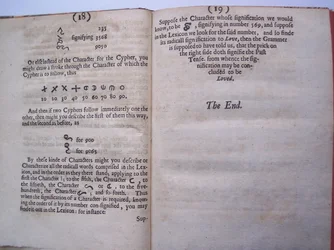 (18)
233
signifying 3168
9050
Or instead of the Character for the Cypher, you
might draw a stroke through the Character of which the
Cypher is to follow, thus
10 20 30 40 50 60 70 80 90
And thus if two Cyphers follow immediately one the
other, then might you describe the first of them this way,
and the second as before, as
for 900
for 9003
By these kinde of Characters might you describe or
Characterize all the radicall words comprised in the Lex-
icon, and in the order as they there stand, applying to the
first the Character 1, to the
the fiftieth, the Character to the five-
hundredth, the Character and so forth. Thus
when the signification of a Character is required, know-
ing the order of it by its number
finde it out in the Lexicon: for instance
Sup-
(19)
Suppose the Character whose signification we would
know, to be signifying in number 369, and suppose
in the Lexicon we look for the said number, and so finde
its radicall signification to Love, then the Grammer
is supposed to have told us, that the prick on
the right side doth signifie the Past
Tense. from whence the sig-
nification may be con-
cluded to be
Loved.
The End.